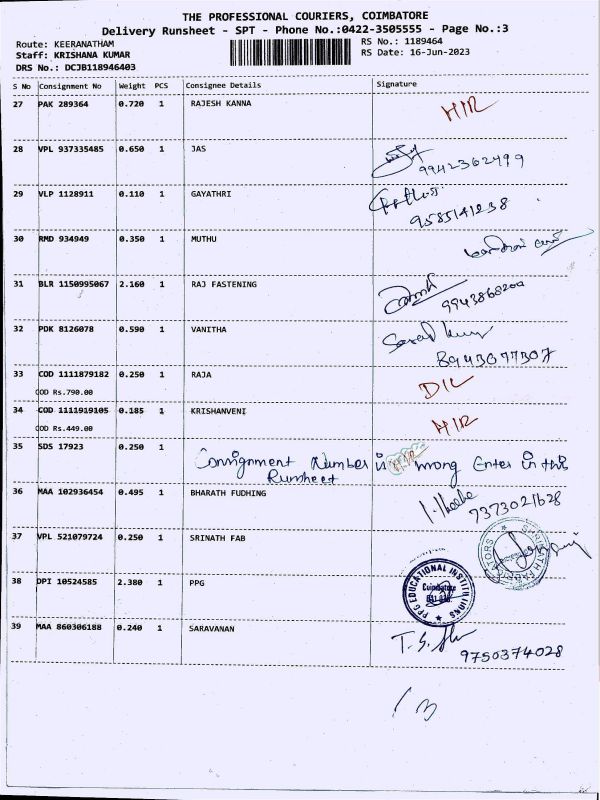 THE PROFESSIONAL COURIERS, COIMBATORE
Delivery Runsheet - SPT - Phone No.:0422-3505555 - Page No.:3
Route: KEERANATHAM RS No.: 1189464
Staff: KRISHANA KUMAR RS Date: 16-Jun-2023
DRS No.: DCJB118946403
S No Consignment No Weight PCS Consignee Details Signature
27 PAK 289364 0.720 1 RAJESH KANNA
28 VPL 937335485 0.650 1 JAS
9942362499
29 VLP 1128911 0.110 1 GAYATHRI
9585141238
30 RMD 934949 0.350 1 MUTHU
31 BLR 1150995067 2.160 1 RAJ FASTENING
9943868200
32 PDK 8126078 0.590 1 VANITHA
8943077307
33 COD 1111879182 0.250 1 RAJA
COD Rs.790.00 D/L
34 COD 1111919105 0.185 1 KRISHANVENI
COD Rs.449.00
35 SDS 17923 0.250 1
Consignment Number is wrong Enter in this
Runsheet
36 MAA 102936454 0.495 1 BHARATH FUDHING
7373021628
37 VPL 521079724 0.250 1 SRINATH FAB
38 DPI 10524585 2.380 1 PPG
PPG EDUCATIONAL INSTITUTIONS
Coimbatore
39 MAA 860306188 0.240 1 SARAVANAN
9750374028